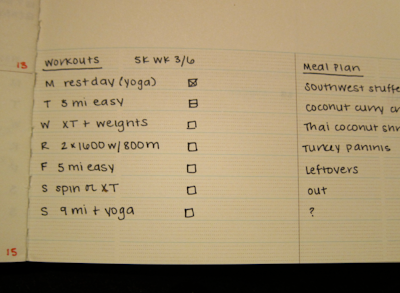 13
Workouts 5K WK 3/6
M rest day (yoga)
T 5 mi easy
W XT + weights
R 2x1600 w/800m
F 5 mi easy
S spin or XT
S 9 mi + yoga
15
Meal Plan
Southwest stuffe
coconut curry
Thai coconut
Turkey paninis
Leftovers
out
?